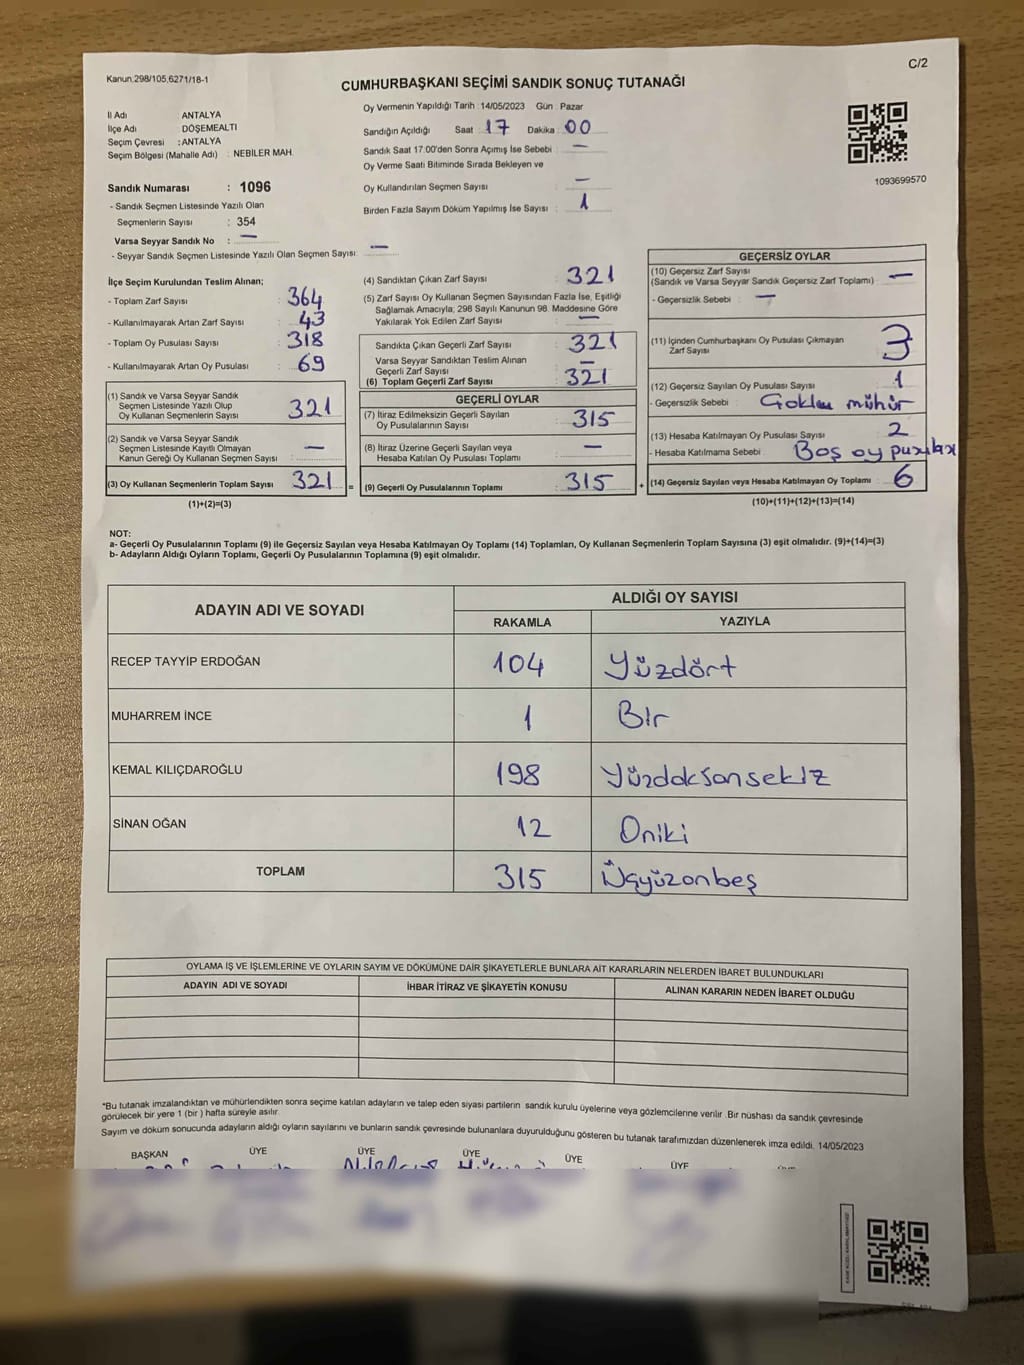 Kanun.298/105,6271/18-1
C/2
CUMHURBAŞKANI SEÇİMİ SANDIK SONUÇ TUTANAĞI
İl Adı ANTALYA
İlçe Adı DÖŞEMEALTI
Seçim Çevresi : ANTALYA
Seçim Bölgesi (Mahalle Adı) : NEBİLER MAH.
Sandık Numarası : 1096
- Sandık Seçmen Listesinde Yazılı Olan
Seçmenlerin Sayısı : 354
Varsa Seyyar Sandık No : —
- Seyyar Sandık Seçmen Listesinde Yazılı Olan Seçmen Sayısı: —
Oy Vermenin Yapıldığı Tarih : 14/05/2023 Gün : Pazar
Sandığın Açıldığı Saat : 17 Dakika : 00
Sandık Saat 17.00'den Sonra Açımış İse Sebebi : —
Oy Verme Saati Bitiminde Sırada Bekleyen ve
Oy Kullandırılan Seçmen Sayısı : —
Birden Fazla Sayım Döküm Yapılmış İse Sayısı : 1
1093699570
İlçe Seçim Kurulundan Teslim Alınan;
- Toplam Zarf Sayısı : 364
- Kullanılmayarak Artan Zarf Sayısı : 43
- Toplam Oy Pusulası Sayısı : 318
- Kullanılmayarak Artan Oy Pusulası : 69
(1) Sandık ve Varsa Seyyar Sandık
Seçmen Listesinde Yazılı Olup
Oy Kullanan Seçmenlerin Sayısı : 321
(2) Sandık ve Varsa Seyyar Sandık
Seçmen Listesinde Kayıtlı Olmayan
Kanun Gereği Oy Kullanan Seçmen Sayısı : —
(3) Oy Kullanan Seçmenlerin Toplam Sayısı : 321 =
(1)+(2)=(3)
(4) Sandıktan Çıkan Zarf Sayısı : 321
(5) Zarf Sayısı Oy Kullanan Seçmen Sayısından Fazla İse, Eşitliği
Sağlamak Amacıyla, 298 Sayılı Kanunun 98. Maddesine Göre
Yakılarak Yok Edilen Zarf Sayısı : —
Sandıkta Çıkan Geçerli Zarf Sayısı : 321
Varsa Seyyar Sandıktan Teslim Alınan
Geçerli Zarf Sayısı : —
(6) Toplam Geçerli Zarf Sayısı : 321
GEÇERLİ OYLAR
(7) İtiraz Edilmeksizin Geçerli Sayılan
Oy Pusulalarının Sayısı : 315
(8) İtiraz Üzerine Geçerli Sayılan veya
Hesaba Katılan Oy Pusulası Toplamı : —
(9) Geçerli Oy Pusulalarının Toplamı : 315 +
GEÇERSİZ OYLAR
(10) Geçersiz Zarf Sayısı
(Sandık ve Varsa Seyyar Sandık Geçersiz Zarf Toplamı) : —
- Geçersizlik Sebebi : —
(11) İçinden Cumhurbaşkanı Oy Pusulası Çıkmayan
Zarf Sayısı : 3
(12) Geçersiz Sayılan Oy Pusulası Sayısı : 1
- Geçersizlik Sebebi : mühür
(13) Hesaba Katılmayan Oy Pusulası Sayısı : 2
- Hesaba Katılmama Sebebi : Boş oy
(14) Geçersiz Sayılan veya Hesaba Katılmayan Oy Toplamı : 6
(10)+(11)+(12)+(13)=(14)
NOT:
a- Geçerli Oy Pusulalarının Toplamı (9) ile Geçersiz Sayılan veya Hesaba Katılmayan Oy Toplamı (14) Toplamları, Oy Kullanan Seçmenlerin Toplam Sayısına (3) eşit olmalıdır. (9)+(14)=(3)
b- Adayların Aldığı Oyların Toplamı, Geçerli Oy Pusulalarının Toplamına (9) eşit olmalıdır.
ADAYIN ADI VE SOYADI
ALDIĞI OY SAYISI
RAKAMLA YAZIYLA
RECEP TAYYİP ERDOĞAN 104 Yüzdört
MUHARREM İNCE 1 Bir
KEMAL KILIÇDAROĞLU 198 Yüzdoksansekiz
SİNAN OĞAN 12 Oniki
TOPLAM 315 Üçyüzonbeş
OYLAMA İŞ VE İŞLEMLERİNE VE OYLARIN SAYIM VE DÖKÜMÜNE DAİR ŞİKAYETLERLE BUNLARA AİT KARARLARIN NELERDEN İBARET BULUNDUKLARI
ADAYIN ADI VE SOYADI İHBAR İTİRAZ VE ŞİKAYETİN KONUSU ALINAN KARARIN NEDEN İBARET OLDUĞU
*Bu tutanak imzalandıktan ve mühürlendikten sonra seçime katılan adayların ve talep eden siyasi partilerin sandık kurulu üyelerine veya gözlemcilerine verilir. Bir nüshası da sandık çevresinde
görülecek bir yere 1 (bir ) hafta süreyle asılır.
Sayım ve döküm sonucunda adayların aldığı oyların sayılarını ve bunların sandık çevresinde bulunanlara duyurulduğunu gösteren bu tutanak tarafımızdan düzenlenerek imza edildi. 14/05/2023
BAŞKAN ÜYE ÜYE ÜYE ÜYE ÜYE